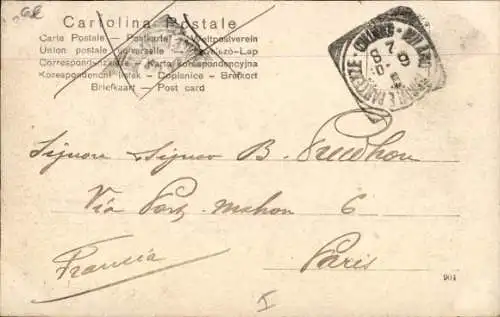 Cartolina Postale
Carte Postale — Postkarte — Weltpostverein
Union postale universelle — Levelező-Lap
Correspondenzkarte — Karta korespondencyjna
Korespondenční lístek — Dopisnice — Brefkort
Briefkaart — Post card
Signor Signor B. Prudhon
Via Port Mahon 6
Francia
Paris
904